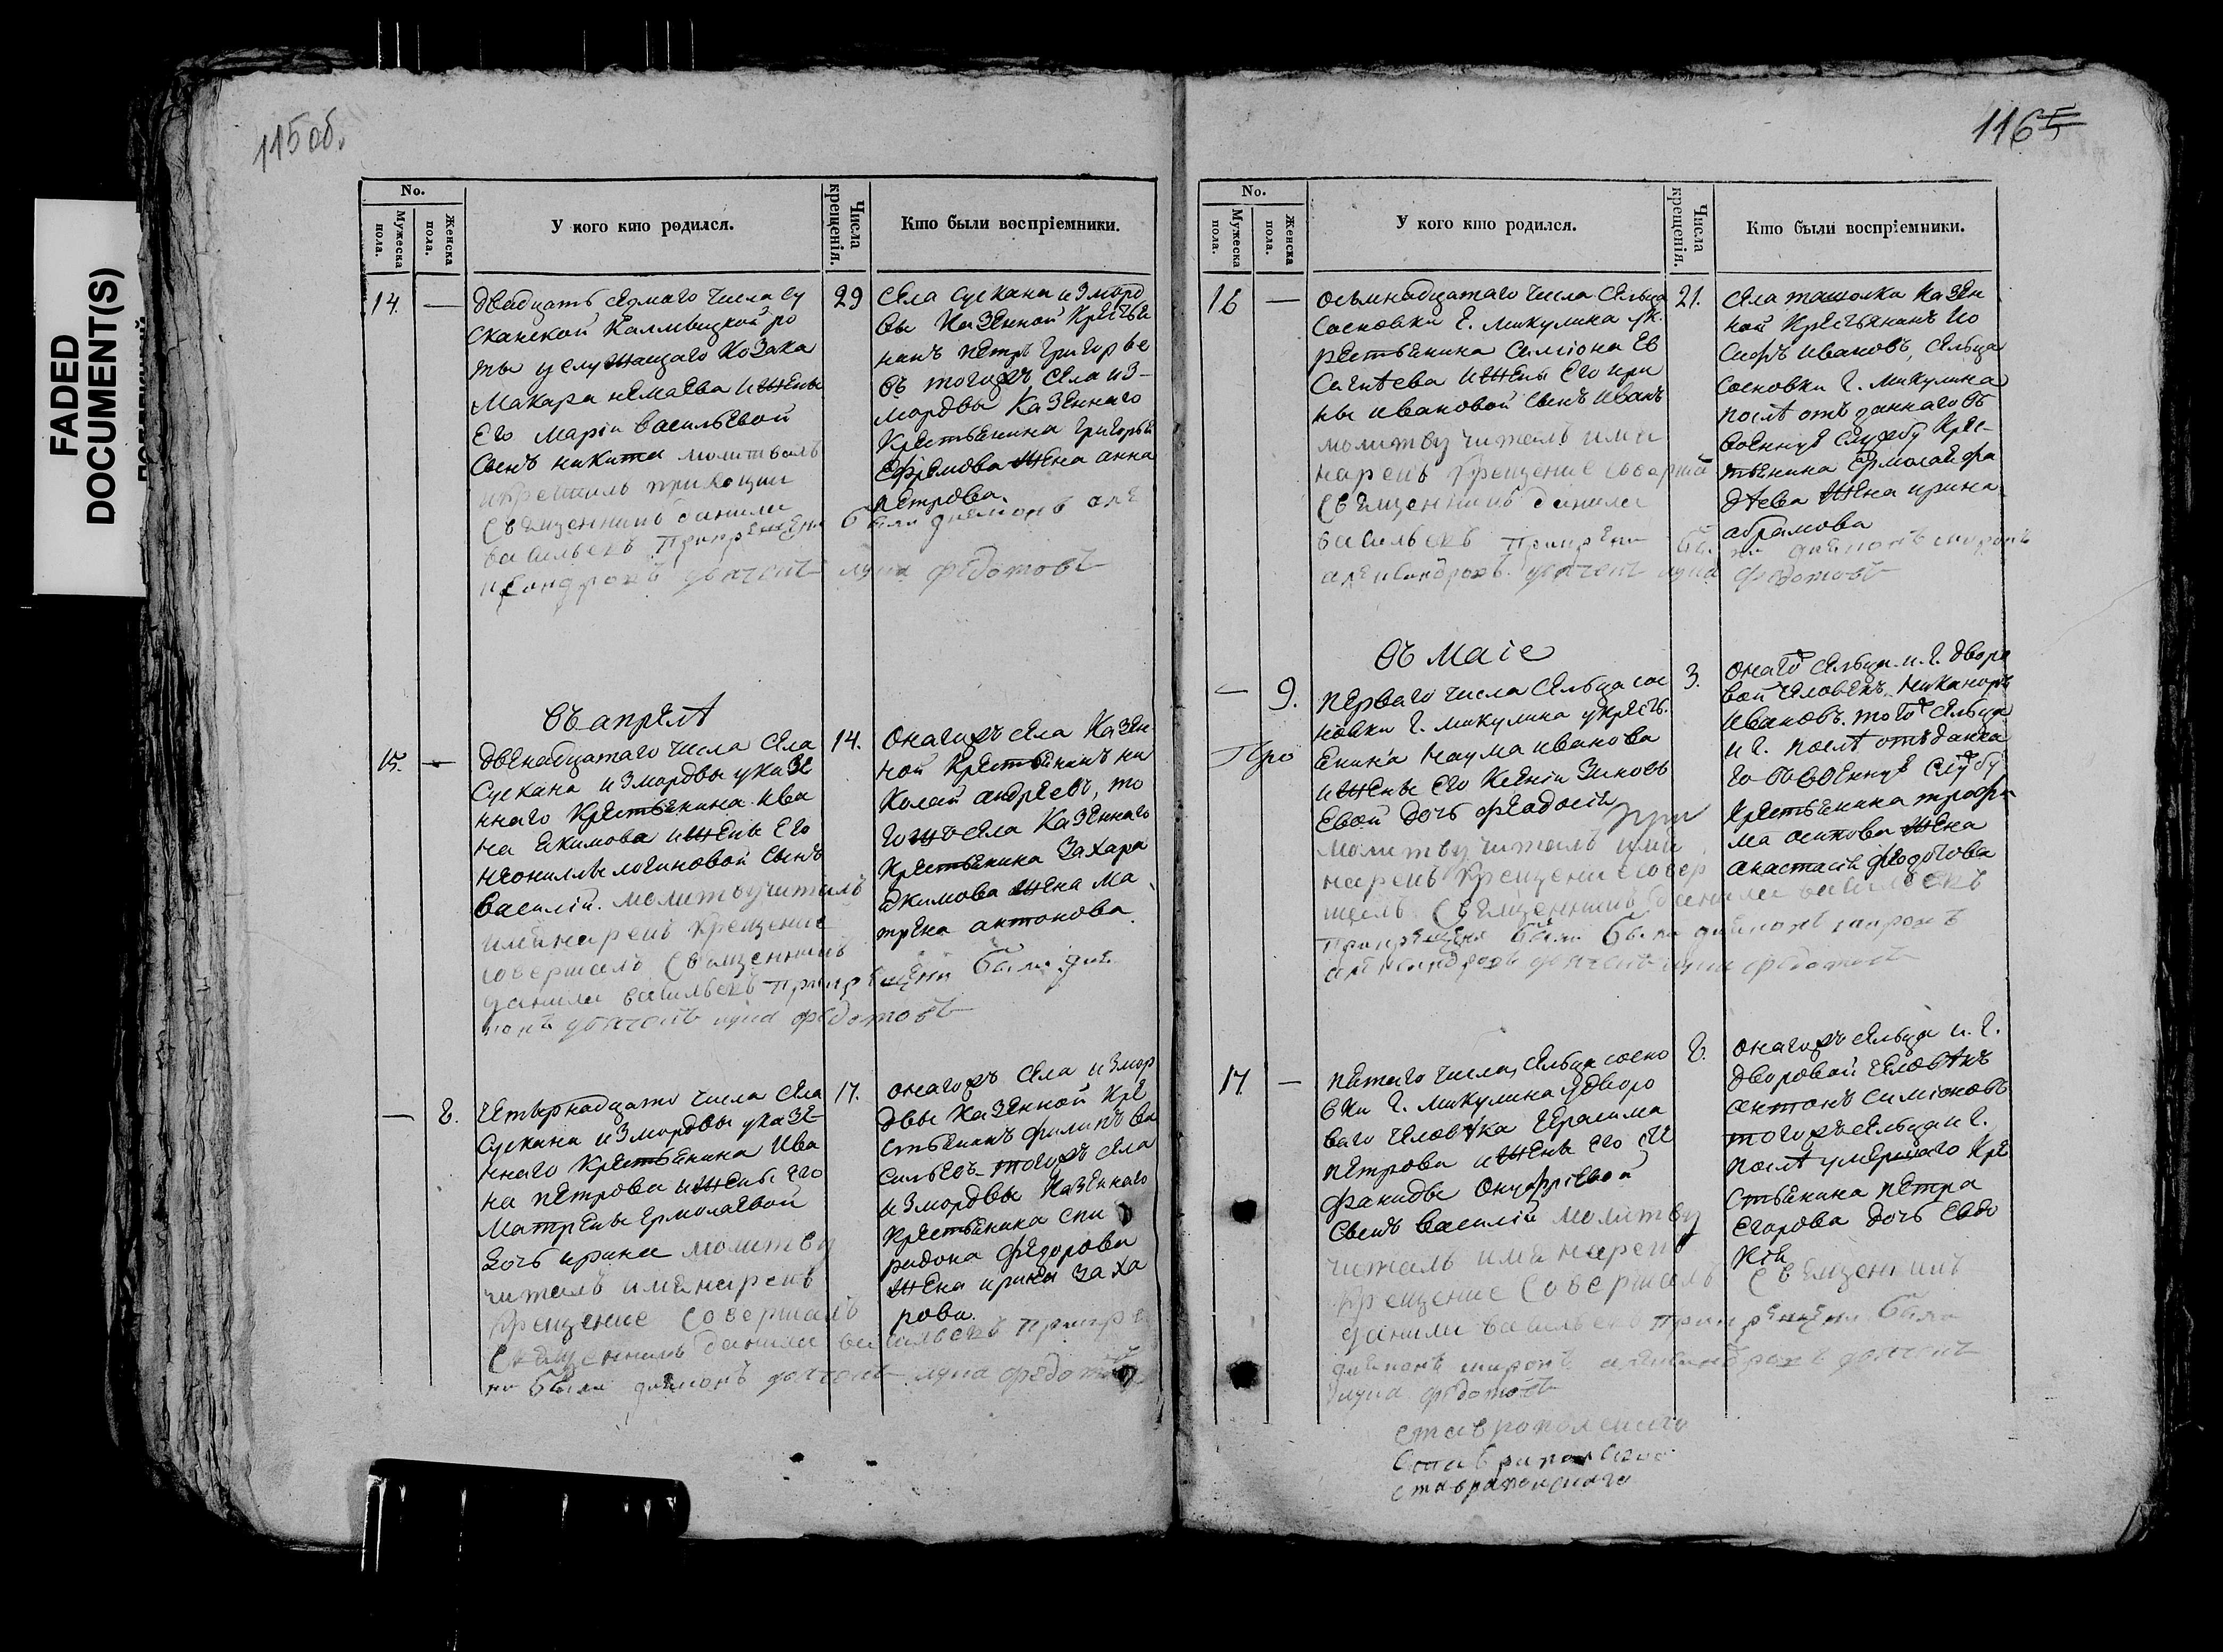 FADED
DOCUMENT(S)
115 об.
No.
Мужеска пола.
Женска пола.
У кого кто родился.
Числа крещенія.
Кто были воспріемники.
14.
—
29
двадцать седмаго числа су
сканской Калмыцкой ро
ты у служащаго Козака
Макара немаева и жены
Его Маріи васильевой
сынъ никита молитвалъ
и крестилъ
священникъ данила
васильевъ при крещени были диаконъ але
ксандровъ дьячекъ лука федотовъ
села сускана из морд
вы Казенной Крестья
нинъ петръ григорье
въ тогожъ села из-
мордвы Казеннаго
Крестьянина григорья
Ефремова жена анна
петрова.
въ апрелѣ
15.
—
14.
двенадцатаго числа села
сускана из мордвы у казе
ннаго Крестьянина ива
на екимова и жены Его
неониллы логиновой сынъ
василій. молитву читалъ
имя нарекъ крещение
совершалъ священникъ
данила васильевъ при крещени были диа
конъ дьячекъ лука федотовъ
онагожъ села Казен
ной Крестьянинъ ни
колай андреевъ, то
гожъ села Казеннаго
Крестьянина Захара
акимова жена ма
трена антонова.
—
8.
17.
четырнадцато числа села
сускана из мордвы у казе-
ннаго Крестьянина ива
на петрова и жены его
матрены ермолаевой
дочь ирина молитву
читалъ имя нарекъ
крещение совершалъ
священникъ данила васильевъ при кре
ни были диаконъ дьячекъ лука федотовъ
онагожъ села измор
двы Казенной Кре
стьянинъ филипъ ва
сильевъ тогожъ села
измордвы Казеннаго
крестьянина спи
ридона федорова
жена ирина заха
рова.
1165
No.
Мужеска пола.
Женска пола.
У кого кто родился.
Числа крещенія.
Кто были воспріемники.
16
—
21.
осьмнадцатаго числа сельца
Сосновки г. микулина у к.
рестьянина симіона Ев
сигнѣева и жены Его ири
ны ивановой сынъ иванъ
молитву читалъ имя
нарекъ крещение соверша
священникъ данила
васильевъ при крещени были диаконъ миронъ
александровъ дьячекъ лука федотовъ
села ташолка Казен
ной Крестьянинъ ио
сифъ ивановъ, сельца
сосновки г. микулина
послѣ отъ даннаго въ
военную службу Крес-
тьянина Ермолая фа
дѣева жена ирина
абрамова
Въ маіе
—
9.
3.
перваго числа сельца сос
новки г. микулина у крест.
Про
янина наума иванова
и жены его Ксеніи Зиновь
евой дочь феодосия
при
молитву читалъ имя
нарекъ крещение совер
шалъ священникъ данила васильевъ
при крещени были были диаконъ миронъ
александровъ дьячекъ лука федотовъ
онаго сельца м. г. дворо
вой человекъ никаноръ
ивановъ. того сельца
м г. послѣ отъ данна
го въ военную службу
Крестьянина трофи
ма осипова жена
анастасия федотова
17.
—
8.
пятаго числа, сельца сосно
вки г. микулина у дворо
ваго человѣка герасима
петрова и жены его сте
фаниды онуфріевой
сынъ василій молитву
читалъ имя нарекъ
крещение совершалъ священникъ
данила васильевъ при крещени были
диаконъ миронъ александровъ дьячекъ
лука федотовъ
онагожъ сельца м. г.
дворовой человѣкъ
антонъ симіоновъ
тогожъ сельца м г.
послѣ умершаго Кре
стьянина петра
егорова дочь Евдо
кія
ставропольскаго